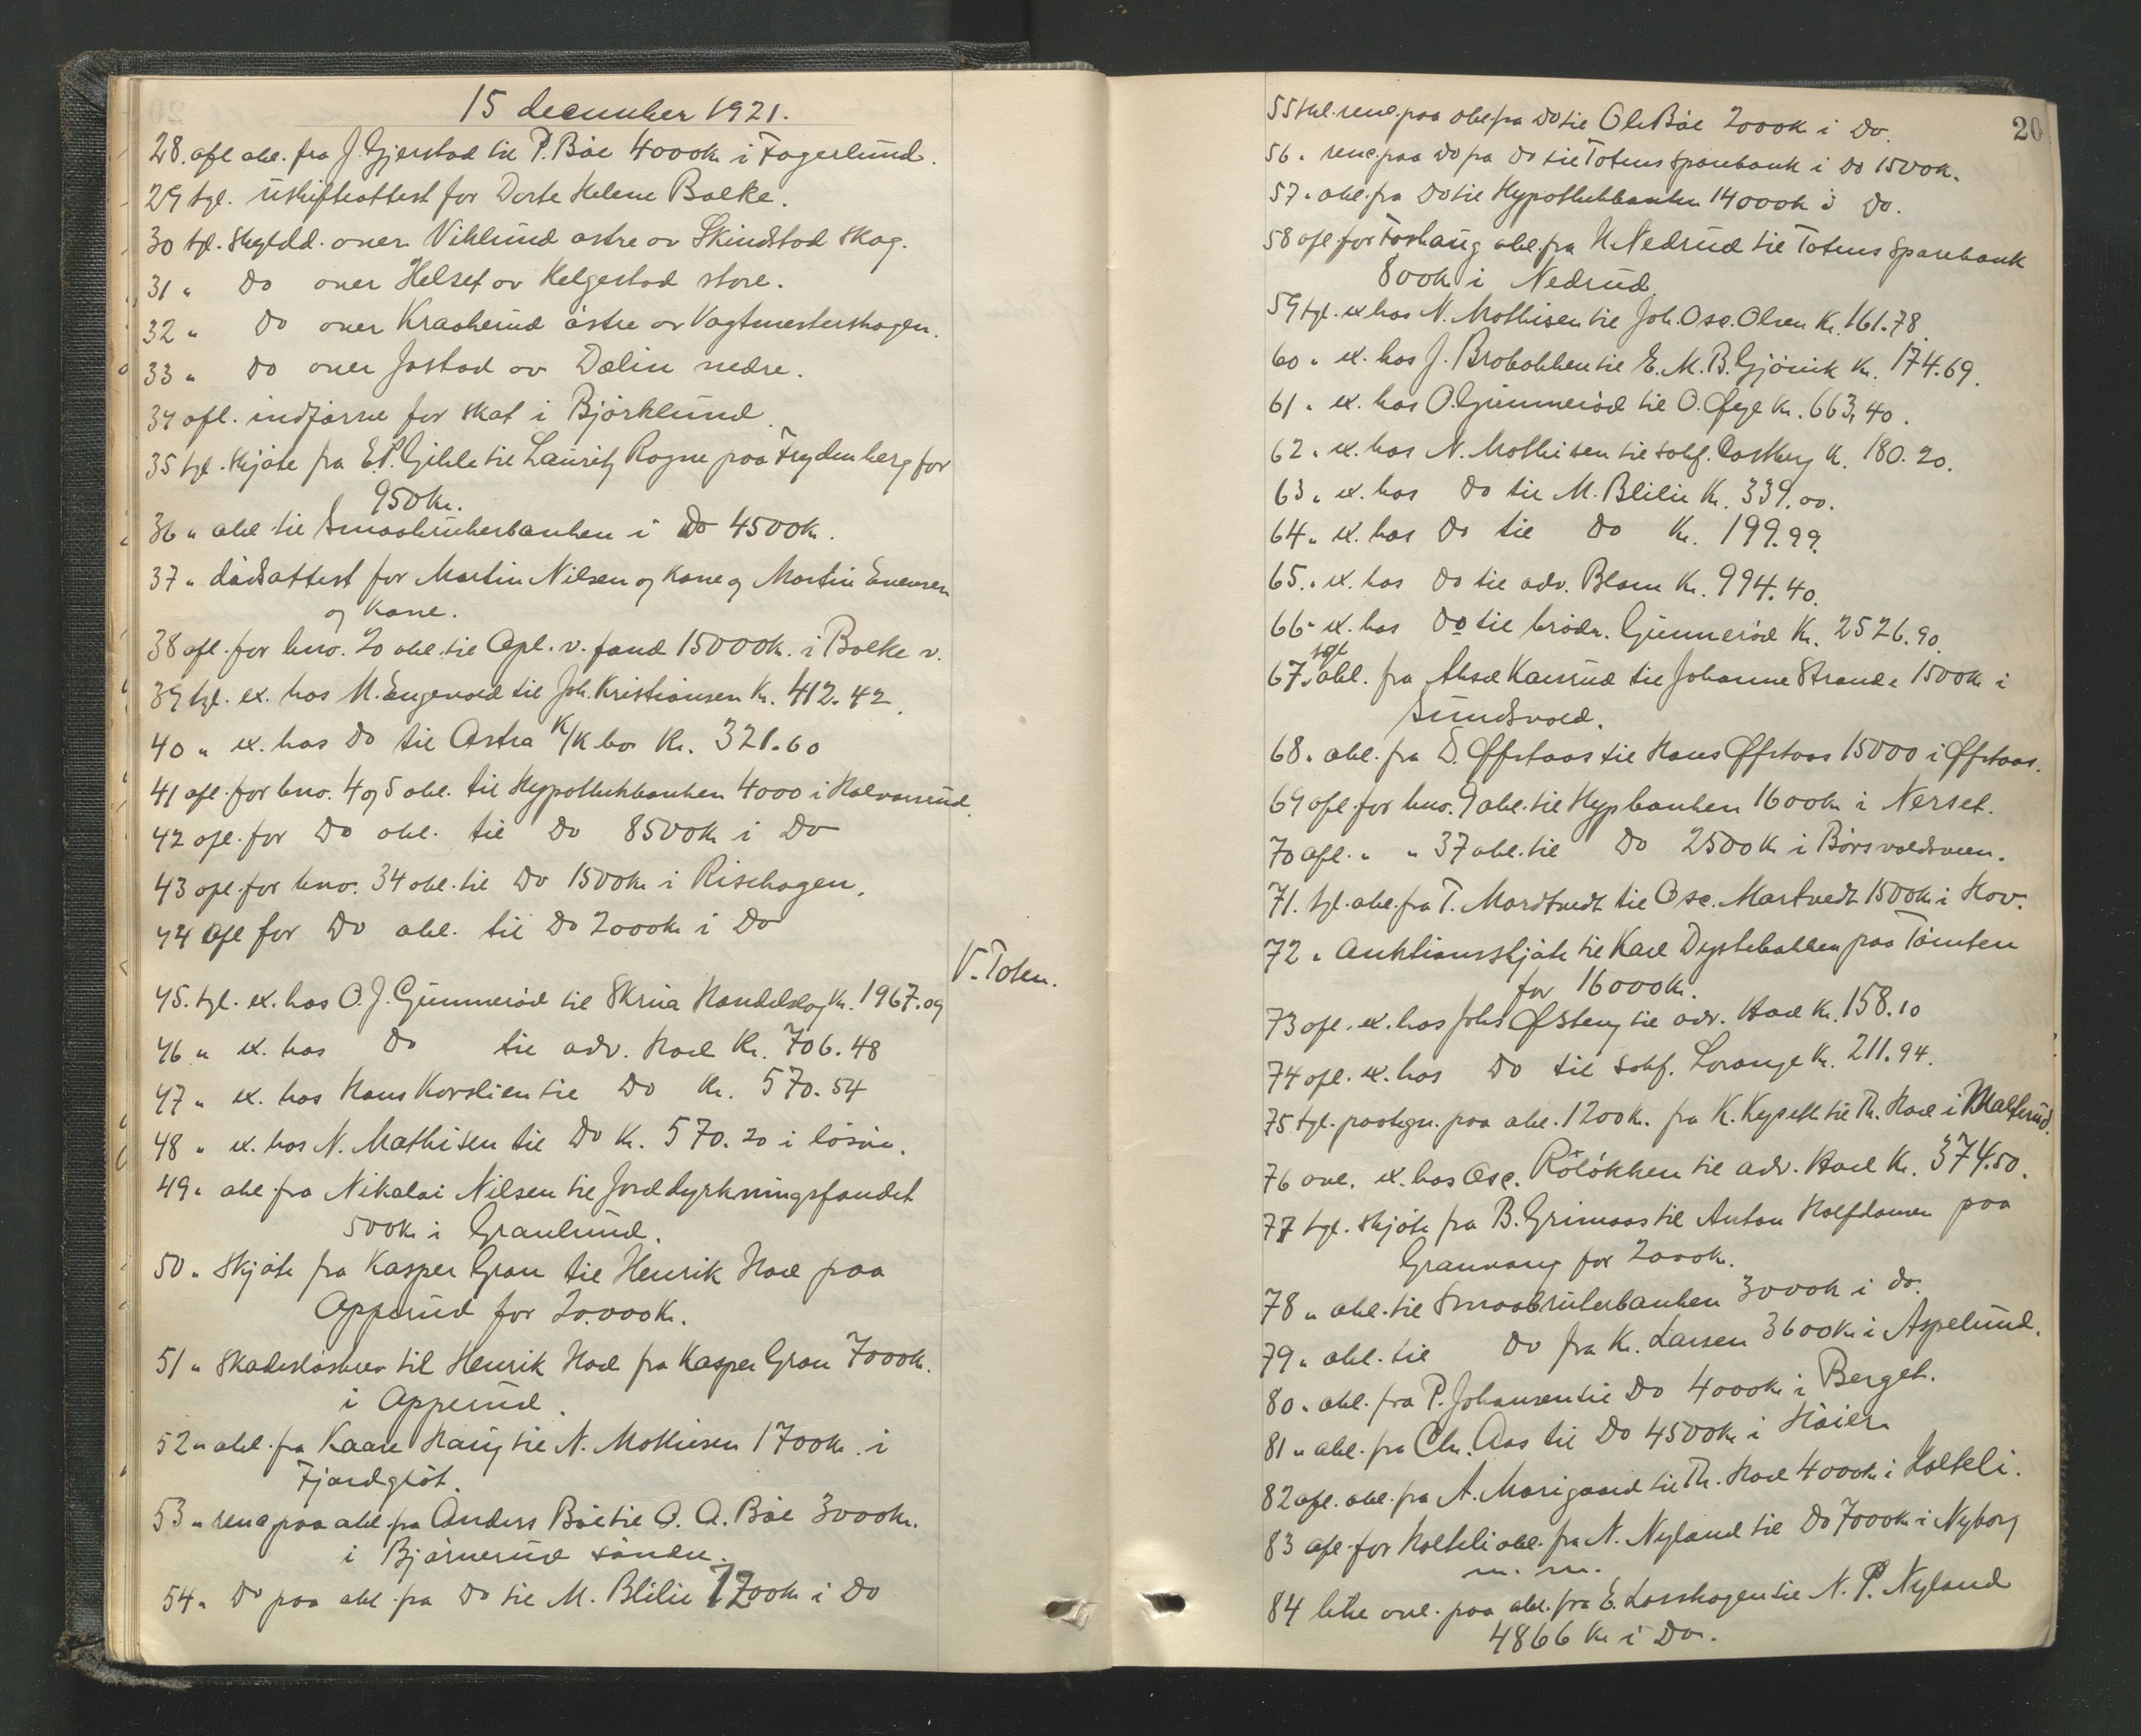 15 december 1921.
28. afl. obl. fra J. Gjerstad til P. Böe 4000 kr i Fagerlund.
29 tgl. uskifteattest for Dorte Helene Bolke.
30 tgl. skyldd. over Viklund østre av Skindstad skog.
31 " Do over Helset av Helgestad store.
32 " Do over Kraakerud østre av Vagtmestershagen.
33 " Do over Jostad av Dælin nedre.
34 afl. indførne for skat i Björklund.
35 tgl. skjöte fra E.P. Gihle til Lauritz Rogne paa Frydenberg for
950 kr.
36 " obl til Smaabrukerbanken i Do 4500 kr.
37 " dödsattest for Martin Nilsen og kone og Martin Evensen
og kone.
38 afl. for bno. 20 obl. til Opl. v. fond 15000 kr. i Bolke v.
39 tgl. ex. hos M. Engevold til Joh. Kristiansen Kr. 412.42.
40 " ex. hos Do til Astra K/K bo Kr. 321.60
41 afl. for bno. 4 og 5 obl. til Hypothekbanken 4000 i Halvorsrud.
42 afl. for Do obl. til Do 8500 kr i Do
43 afl. for bno. 34 obl. til Do 1500 kr i Rishagen.
44 afl for Do obl. til Do 2000 kr i Do
V. Toten.
45. tgl. ex. hos O. J. Gunneröd til Skreia Handelslag Kr. 1967.09
46 " ex. hos Do til adv. Hoel Kr. 706.48
47 " ex. hos Hans Korslien til Do Kr. 570.54
48 " ex. hos N. Mathisen til Do Kr. 570.20 i lösöre.
49 " obl fra Nikolai Nilsen til Jorddyrkningsfondet
500 kr i Granlund.
50 " Skjöte fra Kasper Gran til Henrik Hoel paa
Apperud for 20.000 kr.
51 " Skadeslösbrev til Henrik Hoel fra Kasper Gran 7000 kr.
i Apperud.
52 " obl. fra Kaare Haug til N. Mothiesen 1700 kr. i
Fjordglöt.
53 " renc paa obl. fra Anders Böe til O. A. Böe 3000 kr.
i Björnerud söndre.
54 " Do paa obl. fra Do til M. Blilie 1200 kr i Do
20
55 tgl. renc. paa obl. fra Do til Ole Böe 2000 kr i Do.
56 " renc. paa Do fra Do til Totens Sparebank i Do 1500 kr.
57 " obl. fra Do til Hypothekbanken 14000 kr i Do.
58 afl. for Foshaug obl. fra N. Nedrud til Totens Sparebank
800 kr i Nedrud.
59 tgl. ex hos N. Mothisen til Joh. Osc. Olsen Kr. 161.78
60 " ex. hos J. Brobakken til E. M. B. Gjövik Kr. 174.69.
61 " ex. hos O. Gunneröd til O. Øye Kr. 663,40.
62 " ex. hos N. Mothisen til sakf. Castberg Kr. 180.20.
63 " ex. hos Do til M. Blilie Kr. 339.00.
64 " ex. hos Do til Do Kr. 199.99.
65. " ex. hos Do til adv. Blom Kr. 994.40.
66 " ex. hos Do til brödr. Gunneröd Kr. 2526.90.
67. tgl obl. fra Aksel Kanrud til Johanne Strande 1500 kr i
Sundsvold.
68 " obl. fra D. Øfstaas til Hans Øfstaas 15000 i Øfstaas.
69 afl. for bno. 9 obl. til Hypbanken 1600 kr i Nerset.
70 afl. " " 37 obl. til Do 2500 kr i Börsvoldsveen.
71. tgl. obl. fra T. Mardtvedt til Osc. Martvedt 1500 kr i Hov.
72 " Auktionsskjöte til Karl Dystebakken paa Tömten
for 16000 kr.
73 afl. ex. hos Johs Østeng til adv. Hoel Kr. 158.10
74 afl. ex. hos Do til sakf. Lorange Kr. 211.94.
75 tgl. paategn. paa obl. 1200 kr. fra K. Kyset til Th. Hoel i Malterud.
76 avl. ex. hos Osc. Rölökken til adv. Hoel Kr. 374.50.
77 tgl. skjöte fra B. Grimaas til Anton Halfdansen paa
Granvang for 2000 kr.
78 " obl. til Smaabrukerbanken 3000 kr i do.
79 " obl. til Do fra K. Larsen 3600 kr i Aspelund.
80 " obl. fra P. Johansen til Do 4000 kr i Berget.
81 " obl. fra Chr. Aas til Do 4500 kr i Höier
82 afl. obl. fra A. Marigaard til Th. Hoel 4000 kr i Holteli.
83 afl. for Holteli obl. fra N. Nyland til Do 7000 kr i Nyborg
m. m.
84 like ovl. paa obl. fra E. Loshagen til N. P. Nyland
4866 kr i Do.